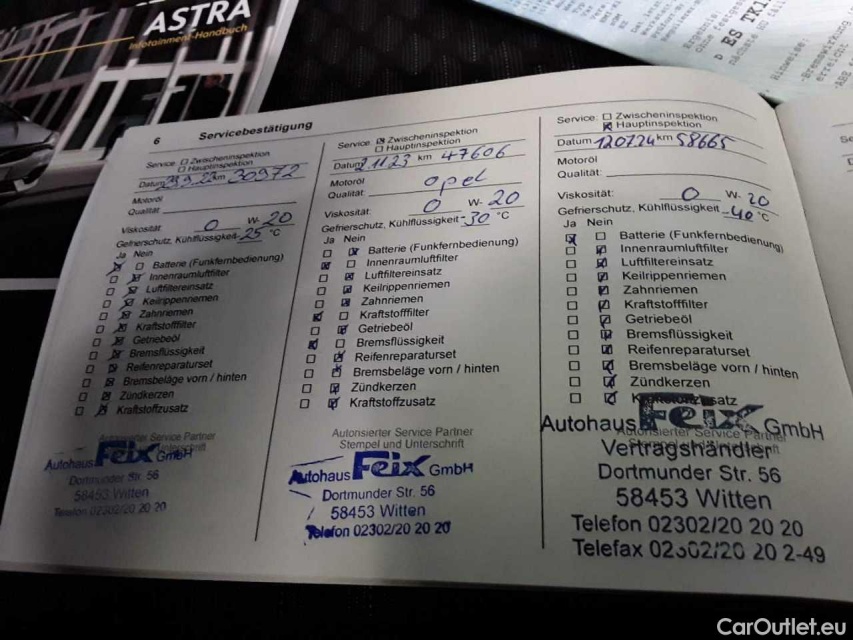 ASTRA
Infotainment-Handbuch
D ES TK1
Hinweise:
6 Servicebestätigung
Service: Zwischeninspektion
Hauptinspektion
Datum 29.9.22 km 30972
Motoröl
Qualität
Viskosität: 0 W- 20
Gefrierschutz, Kühlflüssigkeit -25 °C
Ja Nein
Batterie (Funkfernbedienung)
Innenraumluftfilter
Luftfiltereinsatz
Keilrippenriemen
Zahnriemen
Kraftstofffilter
Getriebeöl
Bremsflüssigkeit
Reifenreparaturset
Bremsbeläge vorn / hinten
Zündkerzen
Kraftstoffzusatz
Autorisierter Service Partner
Stempel und Unterschrift
Autohaus Feix GmbH
Dortmunder Str. 56
58453 Witten
Telefon 02302/20 20 20
Service: Zwischeninspektion
Hauptinspektion
Datum 2.11.23 km 47606
Motoröl
Qualität: Opel
Viskosität: 0 W- 20
Gefrierschutz, Kühlflüssigkeit -30 °C
Ja Nein
Batterie (Funkfernbedienung)
Innenraumluftfilter
Luftfiltereinsatz
Keilrippenriemen
Zahnriemen
Kraftstofffilter
Getriebeöl
Bremsflüssigkeit
Reifenreparaturset
Bremsbeläge vorn / hinten
Zündkerzen
Kraftstoffzusatz
Autorisierter Service Partner
Stempel und Unterschrift
Autohaus Feix GmbH
Dortmunder Str. 56
58453 Witten
Telefon 02302/20 20 20
Service: Zwischeninspektion
Hauptinspektion
Datum 120724 km 58665
Motoröl
Qualität:
Viskosität: 0 W- 20
Gefrierschutz, Kühlflüssigkeit -40 °C
Ja Nein
Batterie (Funkfernbedienung)
Innenraumluftfilter
Luftfiltereinsatz
Keilrippenriemen
Zahnriemen
Kraftstofffilter
Getriebeöl
Bremsflüssigkeit
Reifenreparaturset
Bremsbeläge vorn / hinten
Zündkerzen
Kraftstoffzusatz
Autorisierter Service Partner
Stempel und Unterschrift
Autohaus Feix GmbH
Vertragshändler
Dortmunder Str. 56
58453 Witten
Telefon 02302/20 20 20
Telefax 02302/20 20 2-49
CarOutlet.eu